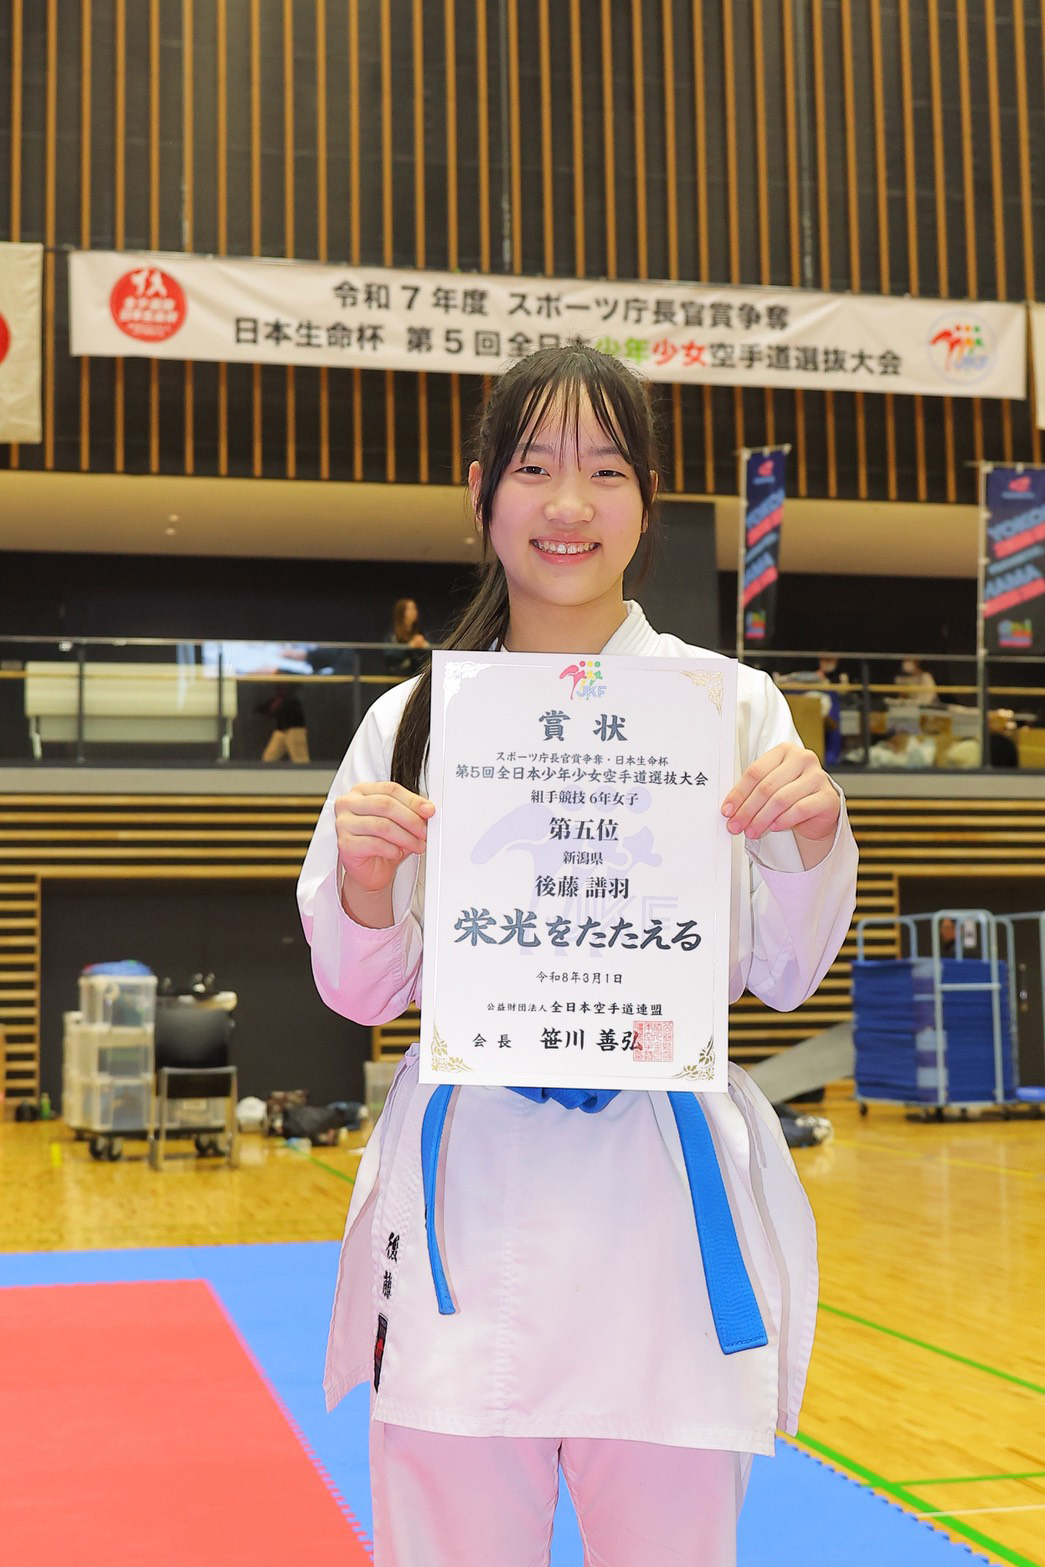 令和7年度 スポーツ庁長官賞争奪
日本生命杯 第5回全日本少年少女空手道選抜大会
JKF
賞状
スポーツ庁長官賞争奪・日本生命杯
第5回全日本少年少女空手道選抜大会
組手競技6年女子
第五位
新潟県
後藤 譜羽
栄光をたたえる
令和8年3月1日
公益財団法人 全日本空手道連盟
会長 笹川 善弘
後藤